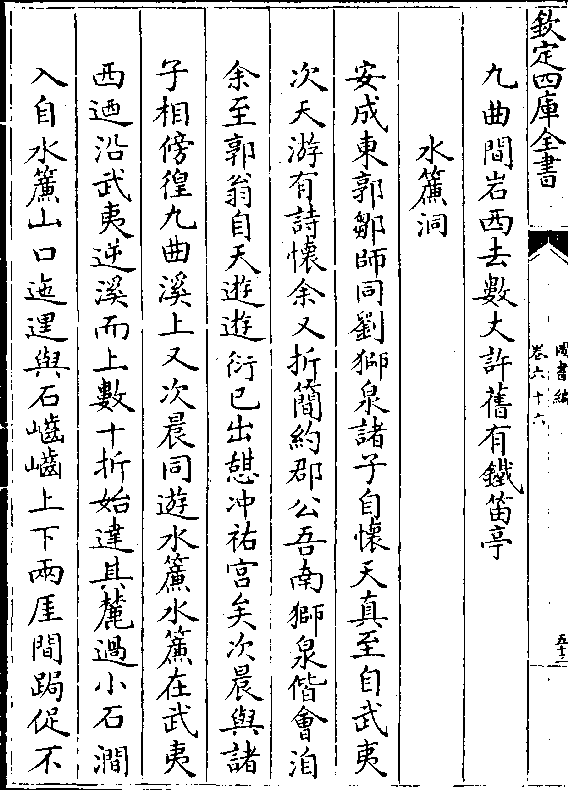 欽定四庫全書
圖書編
卷六十六
五十三
九曲間岩西去數丈許舊有鐵笛亭
水簾洞
安成東郭鄒師同劉獅泉諸子自懷天真至自武夷
次天游有詩懷余又折簡約郡公吾南獅泉偕會洎
余至郭翁自天遊遊衍已出憇冲祐宮矣次晨與諸
子相傍徨九曲溪上又次晨同遊水簾水簾在武夷
西迺沿武夷逆溪而上數十折始達其麓過小石澗
入自水簾山口迤邐與石𡾰𡾰上下兩厓間跼促不